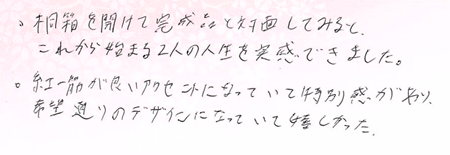 。桐箱を開けて完成品と対面してみると、
これから始まる2人の人生を実感できました。
。紅一筋が良いアクセントになっていて特別感があり、
希望通りのデザインになっていて嬉しかった.